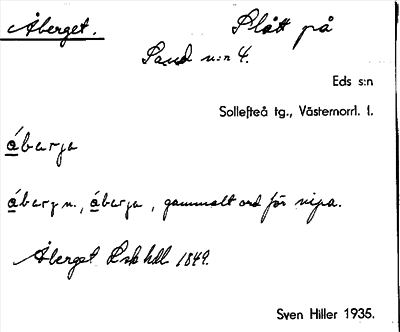 Åberget. Slått på
Sand n:r 4.
Eds s:n
Sollefteå tg., Västernorrl. l.
ábarja
ábarj n., ábarja, gammalt ord för nipa.
Åberget Lsk hdl 1849.
Sven Hiller 1935.